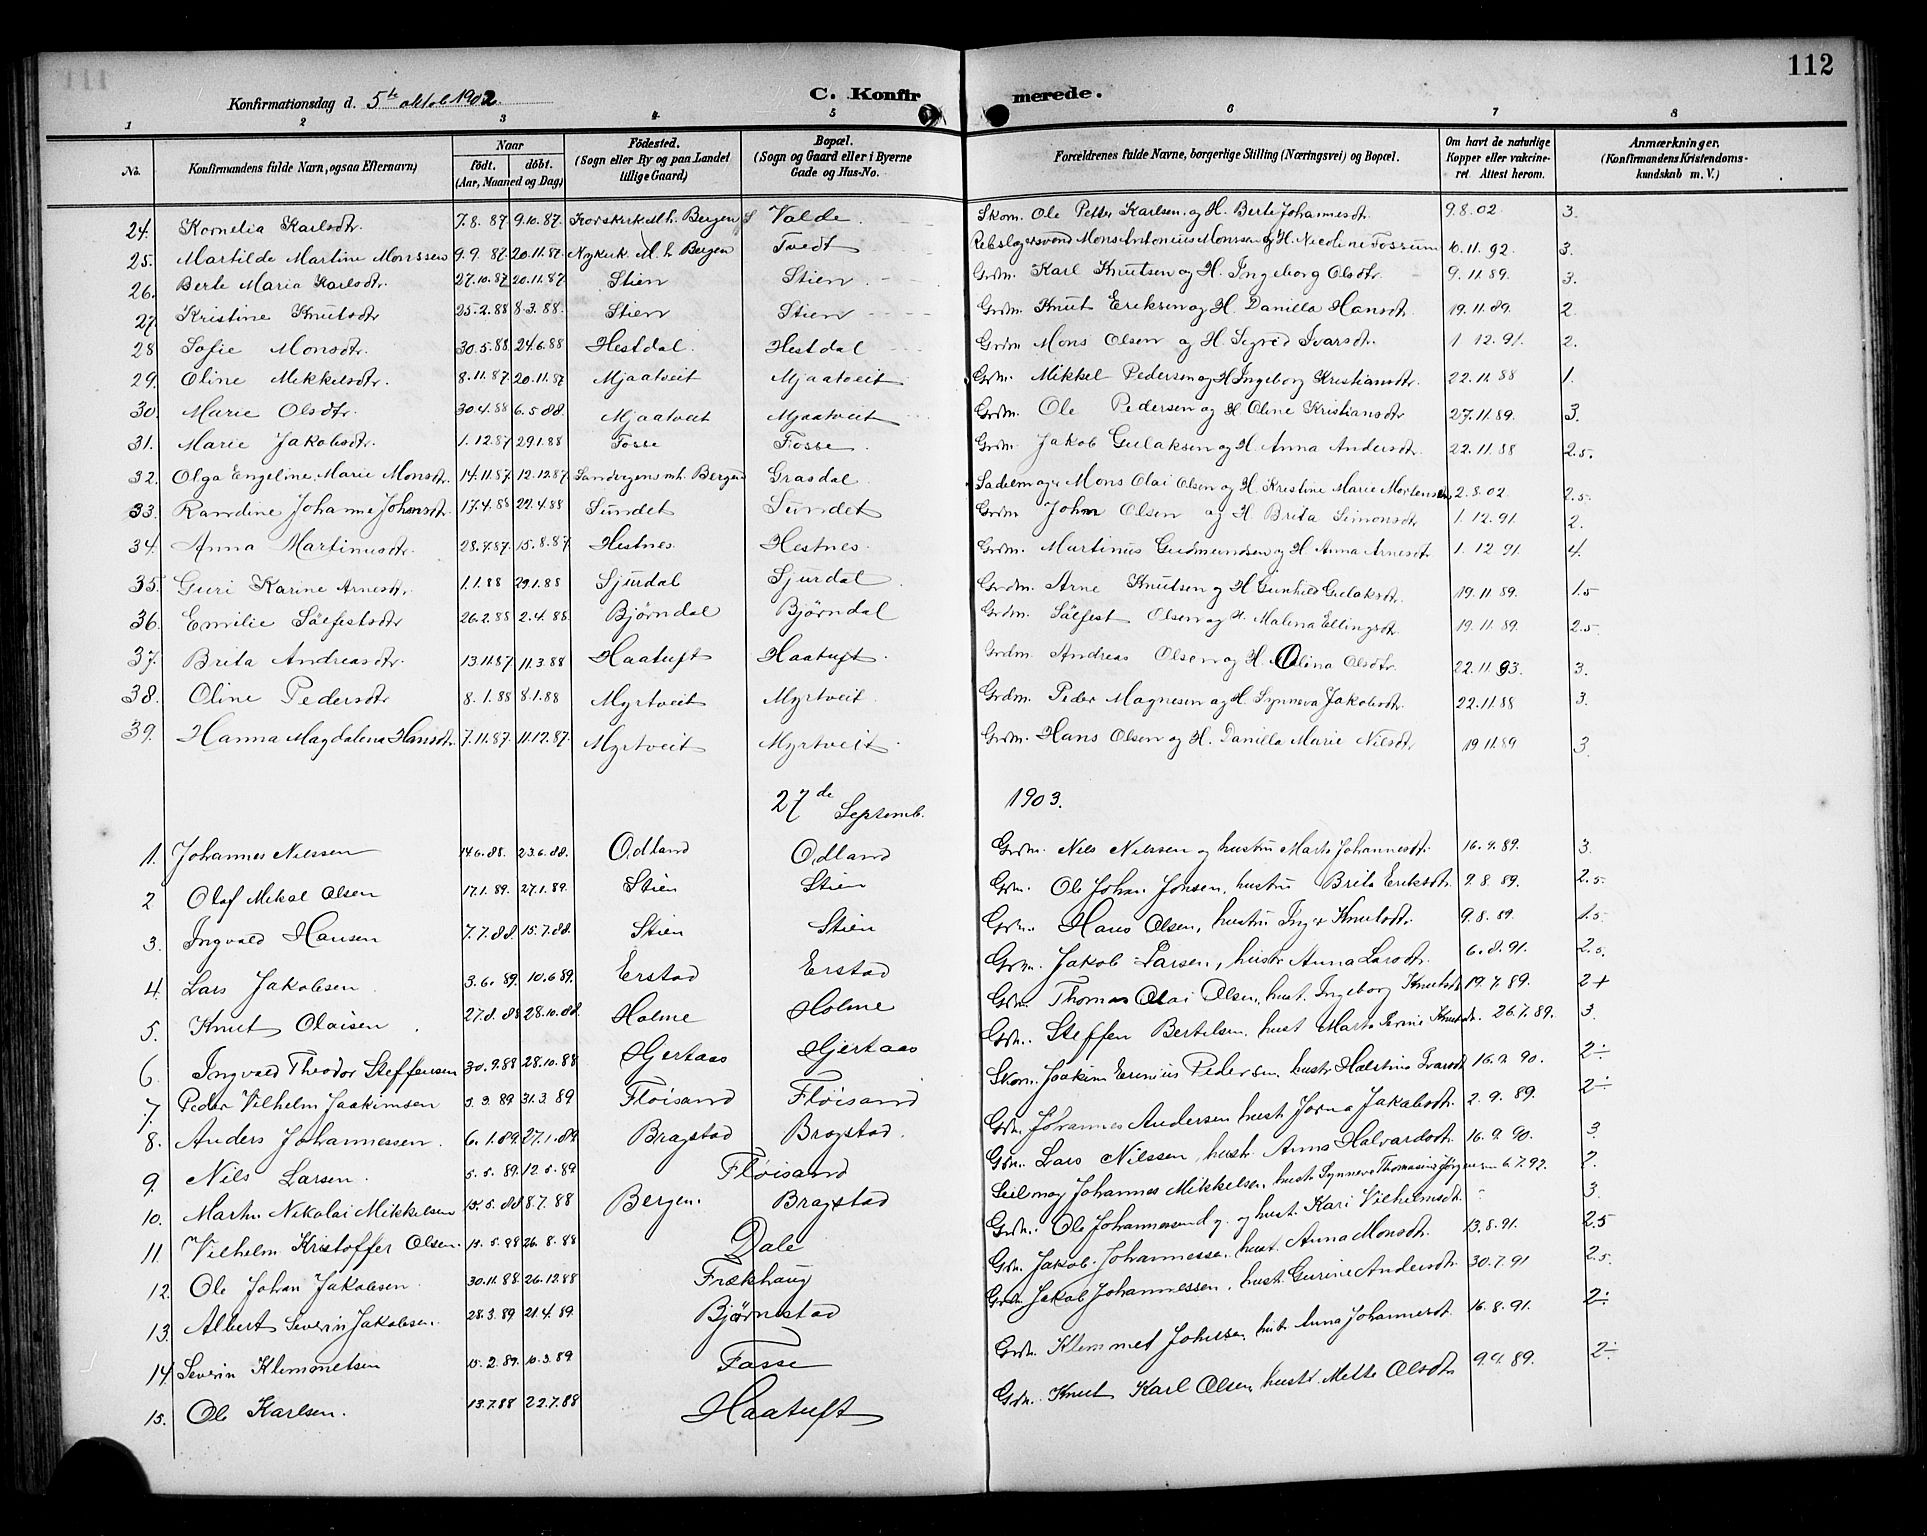 112
Konfirmationsdag d. 5te oktob 1902. C. Konfirmerede.
1 2 3 4 5 6 7 8
No. Konfirmandens fulde Navn, ogsaa Efternavn) Naar födt. döbt. (Aar, Maaned og Dag) Födested. (Sogn eller By og paa Landet tillige Gaard) Bopæl. (Sogn og Gaard eller i Byerne Gade og Hus-No. Forældrenes fulde Navne, borgerlige Stilling (Næringsvei) og Bopæl. Om havt de naturlige Kopper eller vakcineret. Attest herom. Anmærkninger, (Konfirmandens Kristendomskundskab m. V.)
24. Kornelia Karlsdtr. 7.8.87 9.10.87. Korskirk Mh. Bergen Valde Skom. Ole Petter Karlsen og H. Berte Johannesdtr 9.8.02 3.
25. Martilde Martine Monssen 9.9.87. 20.11.87. Nykirk. M.h. Bergen Tvedt Rebslagersvend Mons Antonius Monssen og H. Nicoline Fossum 10.11.92. 3.
26. Berte Maria Karlsdtr. 27.10.87 20.11.87. Stien Stien Grdm. Karl Knutsen og H. Ingeborg Olsdtr. 9.11.89. 3.
27. Kristine Knutsdtr 25.2.88 8.3.88. Stien Stien Grdm. Knut Eriksen og H. Danilla Hansdtr. 19.11.89. 2.
28 Sofie Monsdtr. 30.5.88 24.6.88 Hestdal. Hestdal Grdm Mons Olsen og H. Sigrid Ivarsdtr. 1 12.91. 2.
29. Oline Mikkelsdtr. 8.11.87 20.11.87 Mjaatveit Mjaatveit Grdm. Mikkel Pedersen og H Ingeborg Kristiansdtr. 22.11.88 1.
30. Marie Olsdtr. 30.4.88 6.5.88. Mjaatveit Mjaatveit Grdm. Ole Pedersen og H Oline Kristiansdtr 27.11.89. 3.
31. Marie Jakobsdtr. 1.12.87 29.1.88 Fosse Fosse Grdm. Jakob Gulaksen og H. Anna Andersdtr. 22.11.88 2.5.
32. Olga Engeline Marie Monsdtr. 14.11.87. 12.12.87 Sandvigens mh. Bergen Grasdal Sadelmager Mons Olai Olsen og H. Kristine Marie Mortensen 2.8.02 2.5
33. Randine Johanne Johnsdtr. 17.4.88 22.4.88 Sundet Sundet Grdm John Olsen og H. Brita Simonsdtr 1.12.91. 2.
34. Anna Martinusdtr. 28.7.87. 15.8.87. Hestnes. Hestnes. Grdm. Martinus Gudmundsen og H Anna Arnesdtr 1.12 91. 4.
35. Guri Karine Arnesdtr. 1.1.88 29.1.88 Sjurdal Sjurdal Grdm. Arne Knutsen og H Gunhild Gulaksdtr. 19.11.89. 1.5
36. Emilie Sälfestsdtr 26.2.88 2.4.88. Bjørndal Bjørndal Grdm. Sälfest Olsen og H. Malena Ellingsdtr. 19.11.89. 2.5
37. Brita Andreasdtr. 13.11.87 11.3.88 Haatuft Haatuft. Grdm. Andreas Olsen og H. Olina Olsdtr. 22.11.93. 3.
38. Oline Pedersdtr 8.1.88 8.1.88 Myrtveit Myrtveit. Grdm. Peder Magnesen og H. Synneva Jakobsdtr. 22.11.88 3.
39. Hanna Magdalena Hansdtr. 7.11.87. 11.12.87. Myrtveit Myrtveit. Grdm. Hans Olsen og H. Danilla Marie Nilsdtr 19.11.89 3.
27de Septemb. 1903.
1. Johannes Nilssen 14.6.88. 23.6.88. Odland Odland Grdm. Nils Nilssen og hustru Marta Johannesdtr. 16.9.89. 3.
2 Olaf Mikal Olsen 17.1.89. 27.1.89. Stien Stien Grdm. Ole Johan Jonsen, hustru Brita Eriksdtr. 9.8.89. 2.5.
3. Ingvald Hansen 7.7.88. 15.7.88. Stien Stien Grdm. Hans Olsen, hustru Inger Knutsdtr. 9.8.89. 1.5
4. Lars Jakobsen 3.6.89. 10.6.89. Erstad Erstad Grdm. Jakob Larsen, hustr Anna Larsdtr. 6.8.91. 2.5.
5. Knut Olaisen 27.8.88 28.10.88. Holme Holme Grdm. Thomas Olai Olsen, hust. Ingeborg Knutsdtr 19.7.89. 2+
6. Ingvald Theodor Steffensen 30.9.88 28.10.88 Hjertaas Hjertaas Grdm. Steffen Bertelsen, hust Marta Knutsdtr. 26.7.89. 3.
7. Peder Vilhelm Jaakimsen 3.3.89 31.3.89 Fløisand Fløisand Skom. Joakim Pedersen, hustr Ivarsdtr 16.9.90. 2÷
8. Anders Johannessen. 6.1.89. 27.1.89. Bragstad Bragstad. Grdm. Johannes Andersen hust. Jorna Jakobsdtr. 2.9.89. 2÷
9. Nils Larsen. 5.5.89. 12.5.89 Fløisand Grdm. Lars Nilssen, hustr. Anna Halvardsdtr. 16.9.90. 3.
10. Martin Nikolai Mikkelsen 15.5.88 8.7.88 Bergen. Bragstad Seilmag Johannes Mikkelsen, hustr Synneva Thomasine Jørgensen 6.7.97. 2.
11. Vilhelm Kristoffer Olsen. 15.5.88 26.8.88 Dale Grdm. Ole Johannessen d.y. og hust. Kari Vilhelmsdtr. 3.
12. Ole Johan Jakobsen 30.11.88 26.12.88 Frækhaug Grdm. Jakob Johannessen, hust. Anna Monsdtr. 13.8.91. 2.5
13. Albert Severin Jakobsen. 28.3.89 21.4.89 Bjørnestad Grdm. Jakob Johannessen, hust. Gurine Andersdtr. 30.7.91 2.5.
14. Severin Klemmetsen 15.2.89. 10.3.89 Fosse Grdm. Klemmet Johnsen, hustr Anna Johannesdtr. 16.8.91. 2÷
15. Ole Karlsen. 13.7.88 22.7.88 Haatuft Grdm. Knut Karl Olsen, hustr. Mette Olsdtr 9.9.89. 2÷